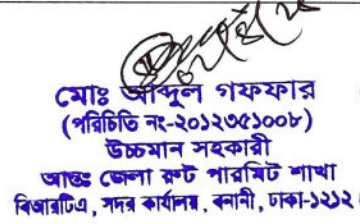 মোঃ আব্দুল গফফার
(পরিচিতি নং-২০১২৩৫১০০৮)
উচ্চমান সহকারী
আন্তঃ জেলা রুট পারমিট শাখা
বিআরটিএ, সদর কার্যালয়, বনানী, ঢাকা-১২১২